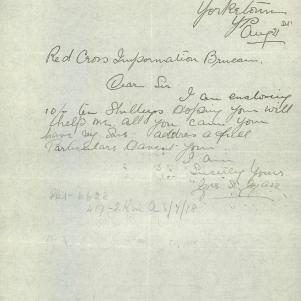 Yorketown
Aug 21st
Red Cross Information Bureau.
Dear Sir
I am enclosing
10/- ten Shullings Hoping you will
help me all you can you
have my Sons address & full
Particulars Havent you
I am
Sincerly Yours